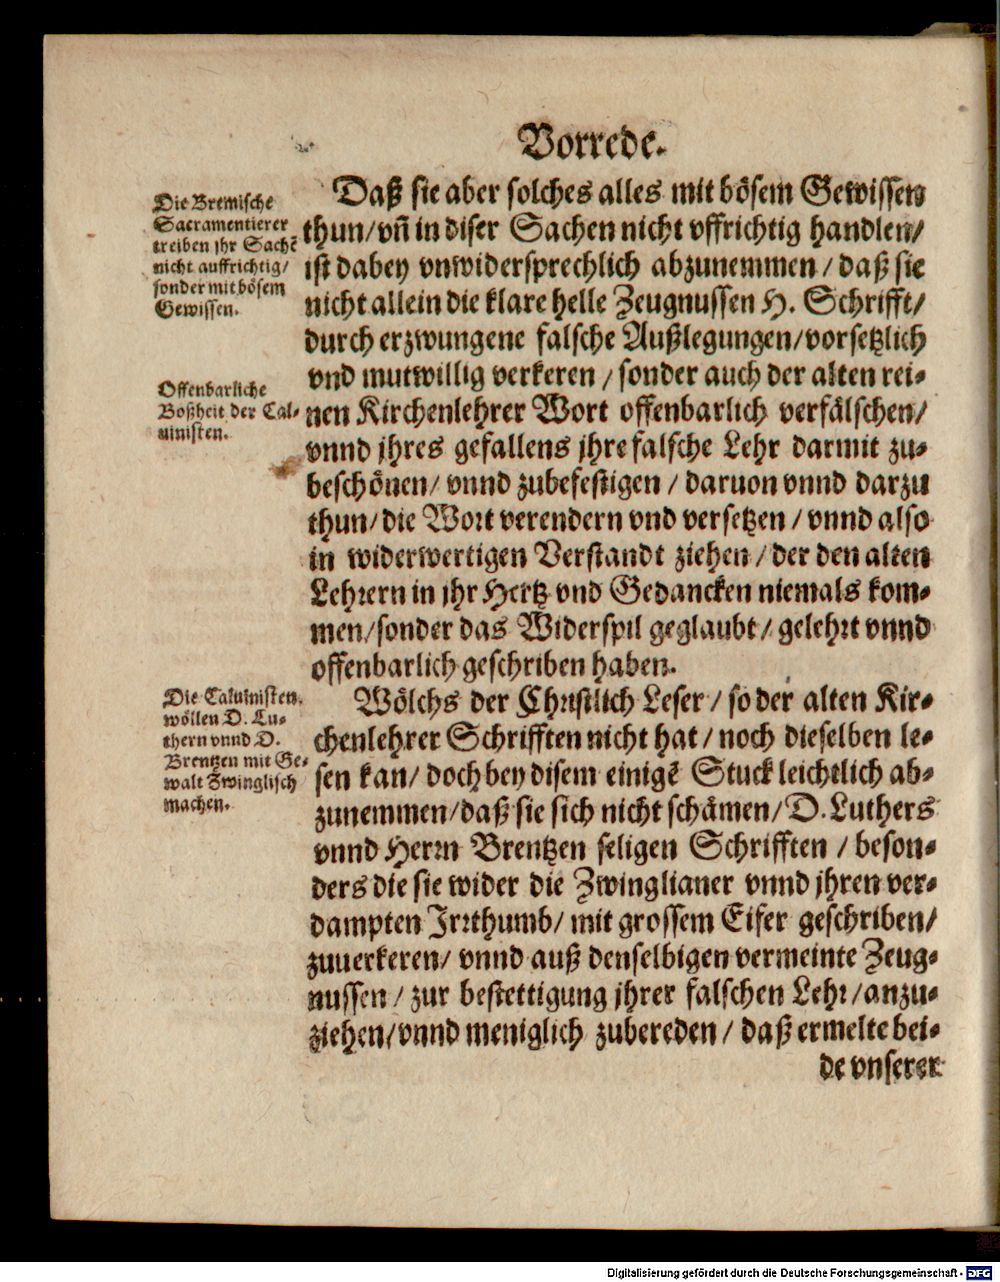 Vorrede.
Die Bremische
Sacramentierer
treiben jhr Sachē
nicht auffrichtig/
sonder mit bösem
Gewissen.
Daß sie aber solches alles mit bösem Gewissen
thun/ vñ in diser Sachen nicht vffrichtig handlen/
ist dabey vnwidersprechlich abzunemmen / daß sie
nicht allein die klare helle Zeugnussen H. Schrifft/
durch erzwungene falsche Außlegungen/ vorsetzlich
vnd mutwillig verkeren / sonder auch der alten rei-
Offenbarliche
Boßheit der Cal-
uinisten.
nen Kirchenlehrer Wort offenbarlich verfälschen/
vnnd jhres gefallens jhre falsche Lehr darmit zu-
beschönen/ vnnd zubefestigen / daruon vnnd darzu
thun/ die Wort verendern vnd versetzen / vnnd also
in widerwertigen Verstandt ziehen / der den alten
Lehrern in jhr Hertz vnd Gedancken niemals kom-
men/ sonder das Widerspil geglaubt / gelehrt vnnd
offenbarlich geschriben haben.
Die Caluinisten
wöllen D. Lu-
thern vnnd D.
Brentzen mit Ge-
walt Zwinglisch
machen.
Wölchs der Christlich Leser / so der alten Kir-
chenlehrer Schrifften nicht hat / noch dieselben le-
sen kan / doch bey disem einigē Stuck leichtlich ab-
zunemmen/ daß sie sich nicht schämen/ D. Luthers
vnnd Herrn Brentzen seligen Schrifften / beson-
ders die sie wider die Zwinglianer vnnd jhren ver-
dampten Irrthumb/ mit grossem Eifer geschriben/
zuuerkeren/ vnnd auß denselbigen vermeinte Zeug-
nussen / zur bestettigung jhrer falschen Lehr / anzu-
ziehen/ vnnd meniglich zubereden / daß ermelte bei-
de vnserer
Digitalisierung gefördert durch die Deutsche Forschungsgemeinschaft - DFG